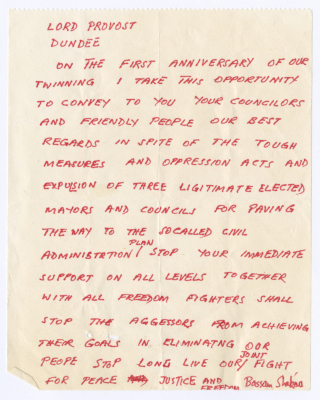 LORD PROVOST
DUNDEE
ON THE FIRST ANNIVERSARY OF OUR
TWINNING I TAKE THIS OPPORTUNITY
TO CONVEY TO YOU YOUR COUNCILORS
AND FRIENDLY PEOPLE OUR BEST
REGARDS IN SPITE OF THE TOUGH
MEASURES AND OPPRESSION ACTS AND
EXPULSION OF THREE LIGITIMATE ELECTED
MAYORS AND COUNCILS FOR PAVING
THE WAY TO THE SOCALLED CIVIL
ADMINISTRATION PLAN / STOP YOUR IMMEDIATE
SUPPORT ON ALL LEVELS TOGETHER
WITH ALL FREEDOM FIGHTERS SHALL
STOP THE AGGESSORS FROM ACHIEVING
THEIR GOALS IN ELIMINATNG OUR
PEOPE STOP LONG LIVE OUR / JOINT FIGHT
FOR PEACE JUSTICE AND FREEDOM Bassam Shaka